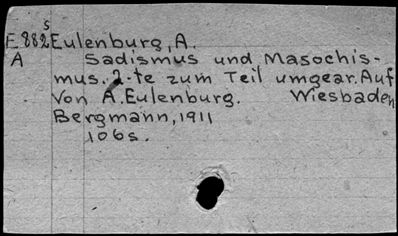 S
E882 Eulenburg, A.
A Sadismus und Masochis-
mus. 2-te zum Teil umgear. Auf
Von A. Eulenburg. Wiesbaden
Bergmann, 1911
106s.